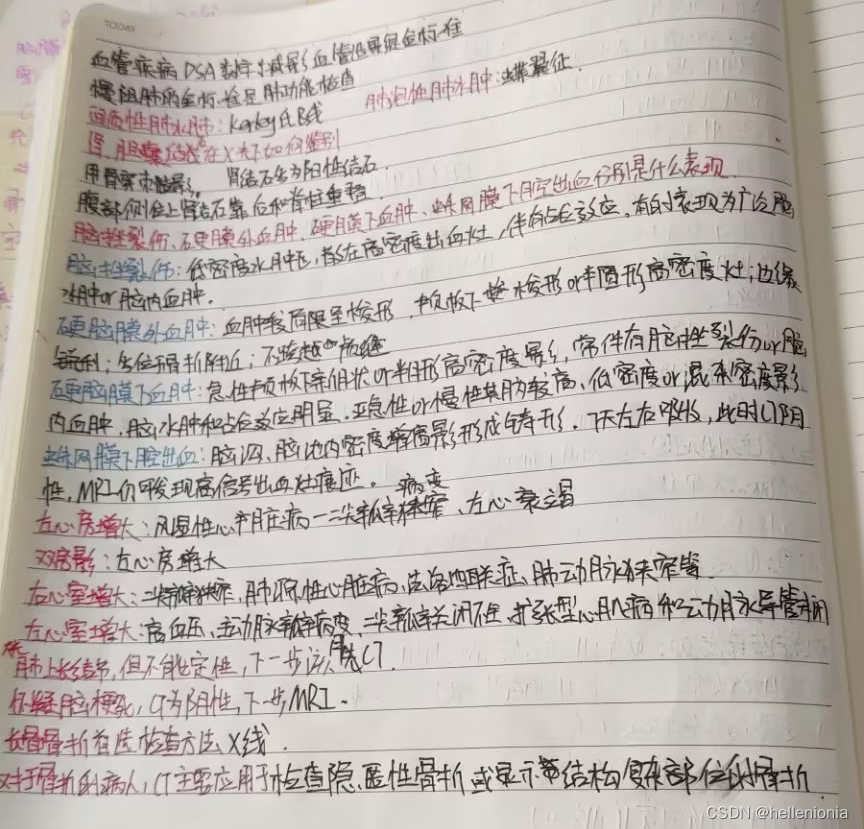 TODAY
血管疾病DSA数字减影血管造影是金标准
慢阻肺的金标准是肺功能检查 肺泡性肺水肿:蝶翼征
间质性肺水肿:Kerley氏B线
肾、胆囊结石在X光下如何鉴别
肾结石多为阳性结石.
腹部侧位上肾结石靠后和脊柱重叠
脑挫裂伤、硬膜外血肿、硬膜下血肿、蛛网膜下腔出血分别是什么表现
脑挫裂伤:低密度水肿区,散在高密度出血灶,伴有占位效应.有的表现为广泛脑
水肿or脑内血肿.
硬脑膜外血肿:血肿较局限呈梭形,颅板下梭形or半圆形高密度灶;边缘
锐利;多位骨折附近;不跨越颅缝
硬脑膜下血肿:急性颅板下新月状or半月形高密度影,常伴有脑挫裂伤or脑
内血肿,脑水肿和占位效应明显.亚急性or慢性其为较高、低密度or混杂密度影
蛛网膜下腔出血:脑沟、脑池内密度增高影形成铸形.7天左右吸收,此时CT阴
性,MRI仍可发现高信号出血灶痕迹. 病变
左心房增大:风湿性心脏病—二尖瓣狭窄、左心衰竭
双房影:左心房增大
右心室增大:二尖瓣狭窄,肺源性心脏病,法洛四联症,肺动脉狭窄等.
左心室增大:高血压,主动脉瓣病变,二尖瓣关闭不全,扩张型心肌病和动脉导管未闭
肺上长结节,但不能定性,下一步该用CT.
怀疑脑梗死,CT为阴性,下一步MRI.
长骨骨折首选检查方法X线.
对于骨折的病人,CT主要应用于检查隐匿性骨折或显示结构复杂部位的骨折.
CSDN @hellenionia